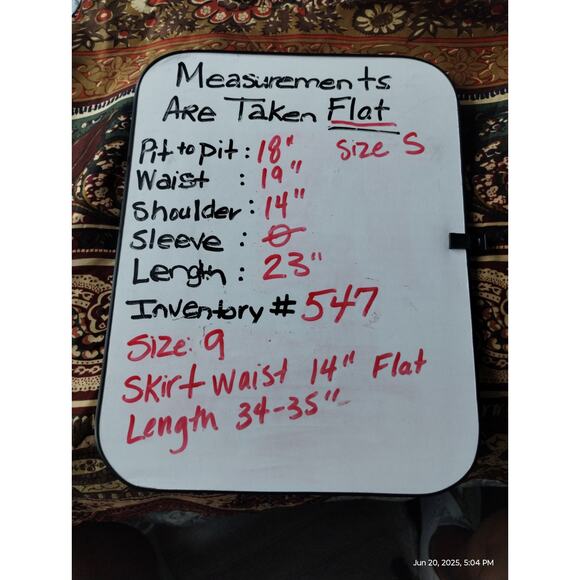 Measurements
Are Taken Flat
Pit to pit: 18" Size S
Waist : 19"
Shoulder: 14"
Sleeve : 0
Length : 23"
Inventory # 547
Size: 9
Skirt Waist 14" Flat
Length 34-35"
Jun 20, 2025, 5:04 PM